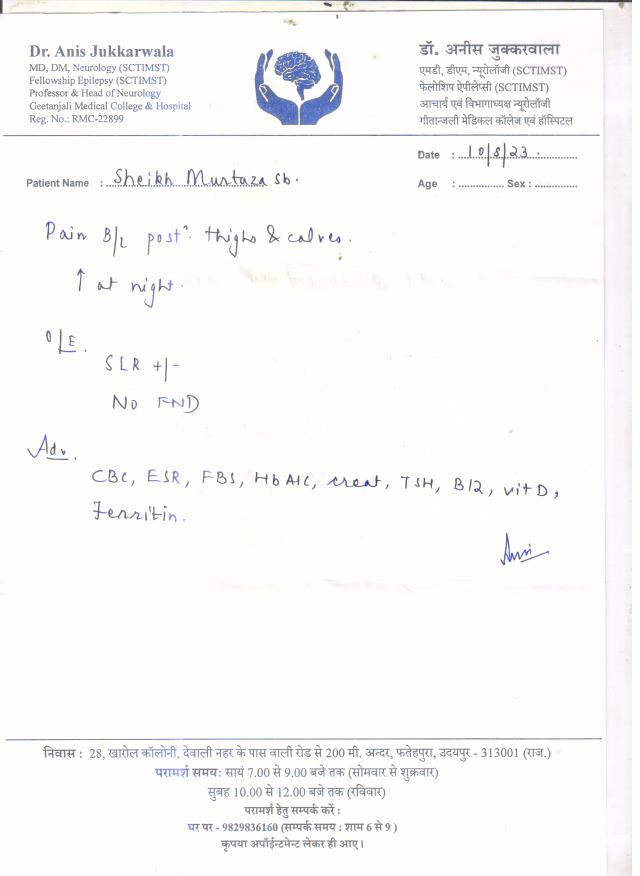 Dr. Anis Jukkarwala
MD, DM, Neurology (SCTIMST)
Fellowship Epilepsy (SCTIMST)
Professor & Head of Neurology
Geetanjali Medical College & Hospital
Reg. No.: RMC-22899
डॉ. अनीस जुक्करवाला
एमडी, डीएम, न्यूरोलॉजी (SCTIMST)
फेलोशिप ऐपीलेप्सी (SCTIMST)
आचार्य एवं विभागाध्यक्ष न्यूरोलॉजी
गीतान्जली मेडिकल कॉलेज एवं हॉस्पिटल
Date : 10/8/23.
Patient Name : Sheikh Murtaza sb.
Age : ............... Sex : ..............
Pain B/L postr. thighs & calves.
↑ at night.
O/E.
SLR +/-
No FND
Adv.
CBC, ESR, FBS, HbA1C, creat, TSH, B12, vit D,
Ferritin.
निवास : 28, खारोल कॉलोनी, देवाली नहर के पास वाली रोड से 200 मी. अन्दर, फतेहपुरा, उदयपुर - 313001 (राज.)
परामर्श समय: सायं 7.00 से 9.00 बजे तक (सोमवार से शुक्रवार)
सुबह 10.00 से 12.00 बजे तक (रविवार)
परामर्श हेतु सम्पर्क करें :
घर पर - 9829836160 (सम्पर्क समय : शाम 6 से 9 )
कृपया अपॉईन्टमेन्ट लेकर ही आए।